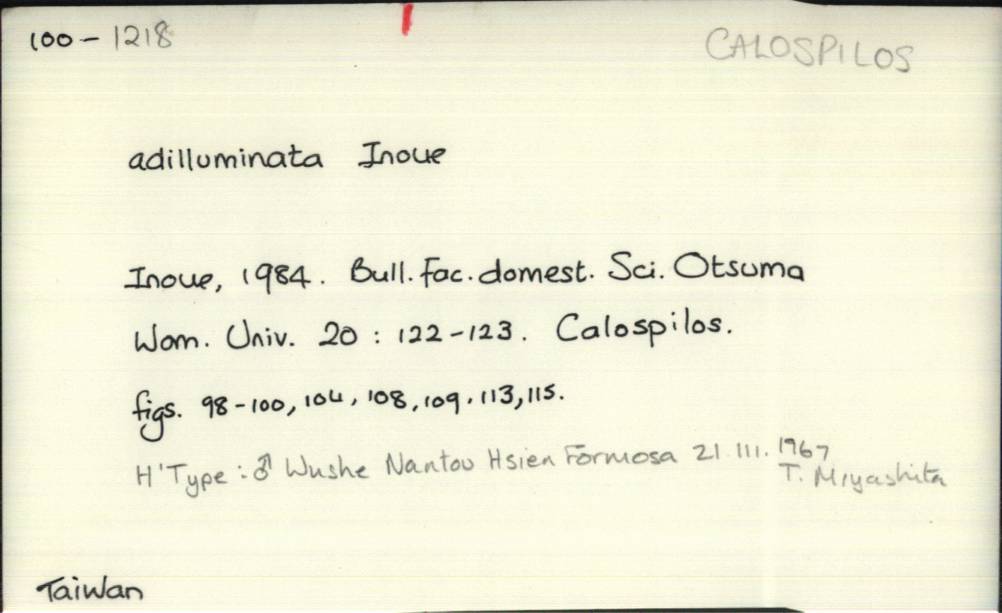 100-1218
CALOSPILOS
adilluminata Inoue
Inoue, 1984. Bull. Fac. domest. Sci. Otsuma
Wom. Univ. 20 : 122-123. Calospilos.
figs. 98-100, 104, 108, 109, 113, 115.
H'Type : ♂ Wushe Nantou Hsien Formosa 21.III.1967
T. Miyashita
Taiwan